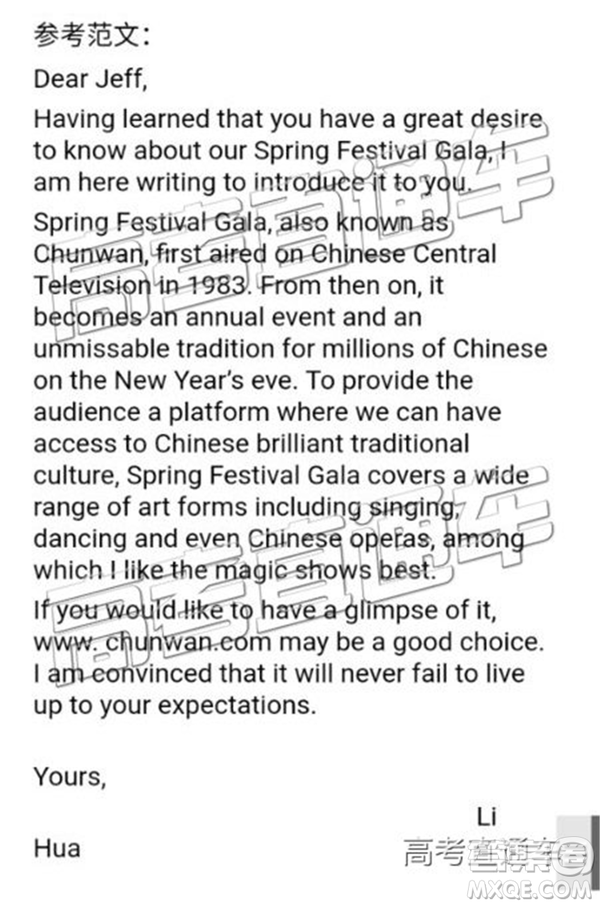 参考范文：
Dear Jeff,
Having learned that you have a great desire
to know about our Spring Festival Gala, I
am here writing to introduce it to you.
Spring Festival Gala, also known as
Chunwan, first aired on Chinese Central
Television in 1983. From then on, it
becomes an annual event and an
unmissable tradition for millions of Chinese
on the New Year's eve. To provide the
audience a platform where we can have
access to Chinese brilliant traditional
culture, Spring Festival Gala covers a wide
range of art forms including singing,
dancing and even Chinese operas, among
which I like the magic shows best.
If you would like to have a glimpse of it,
www. chunwan.com may be a good choice.
I am convinced that it will never fail to live
up to your expectations.
Yours,
Li
Hua
高考直通车
MXQE.COM